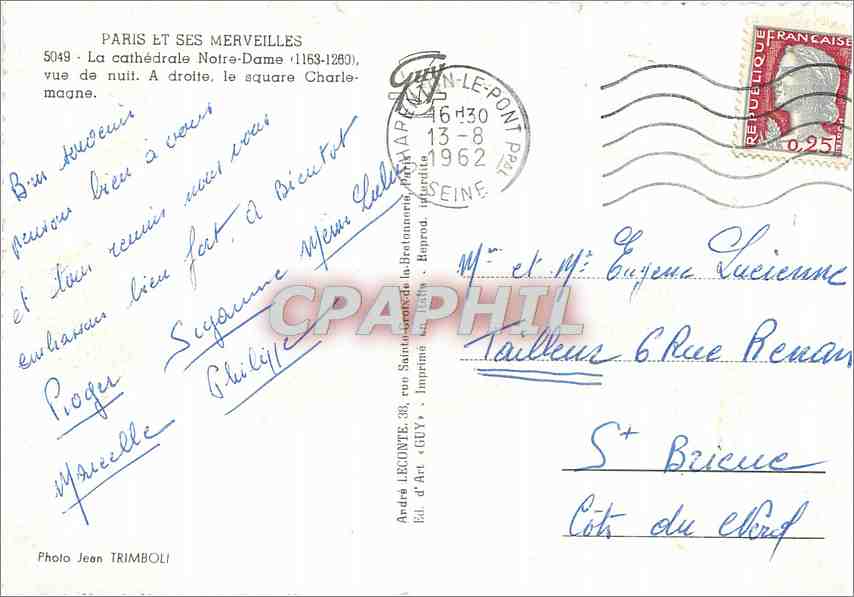 PARIS ET SES MERVEILLES
5049 - La cathédrale Notre-Dame (1163-1260),
vue de nuit. A droite, le square Charle-
magne.
Bon souvenir
pensons bien à vous
et tous réunis nous vous
embrassons bien fort. à Bientot
Roger Suzanne Mémé Lulu
Marcelle Philippe
Photo Jean TRIMBOLI
André LECONTE, 38, rue Sainte-Croix-de-la-Bretonnerie, Paris
Ed. d'Art «GUY» - Imprimé en Italie - Reprod. interdite
GUY
CHARENTON-LE-PONT PPAL
16H30
13-8
1962
SEINE
REPUBLIQUE FRANÇAISE
0,25
Mr et Me Eugene Lucienne
Tailleur 6 Rue Renan
St Brieuc
Côts du Nord
CPAPHIL